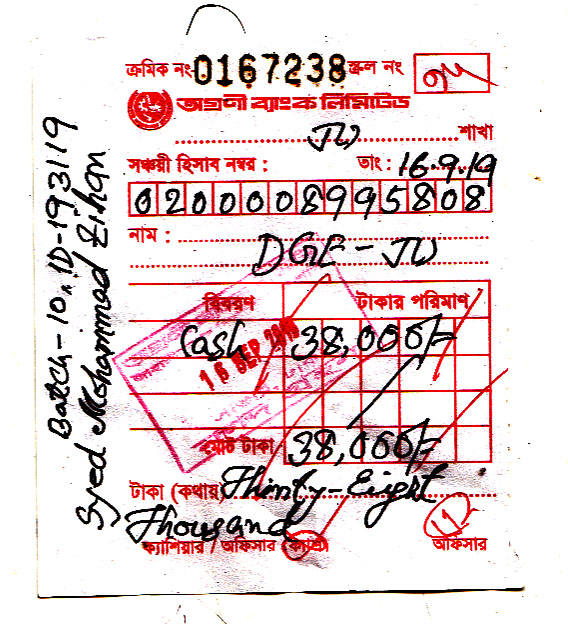 ক্রমিক নং 0167238 স্ক্রল নং
অগ্রণী ব্যাংক লিমিটেড
JU শাখা
সঞ্চয়ী হিসাব নম্বর : তাং : 16.9.19
0200008995808
নাম : DGE - JU
বিবরণ টাকার পরিমাণ
Cash 38,000/=
16 SEP 2019
মোট টাকা 38,000/=
টাকা (কথায়) Thirty-Eight
Thousand
ক্যাশিয়ার / অফিসার (ক্যাশ) অফিসার
Batch-10, ID-193119
Syed Mohammad Zihan